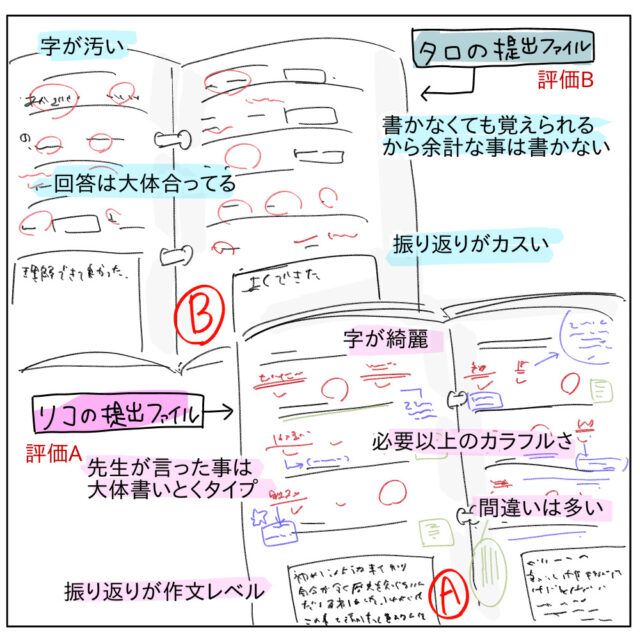 字が汚い
タロの提出ファイル
評価B
書かなくても覚えられる
から余計な事は書かない
回答は大体合ってる
振り返りがカスい
理解できて良かった.
よくできた
B
字が綺麗
リコの提出ファイル
評価A
必要以上のカラフルさ
先生が言った事は
大体書いとくタイプ
間違いは多い
振り返りが作文レベル
A